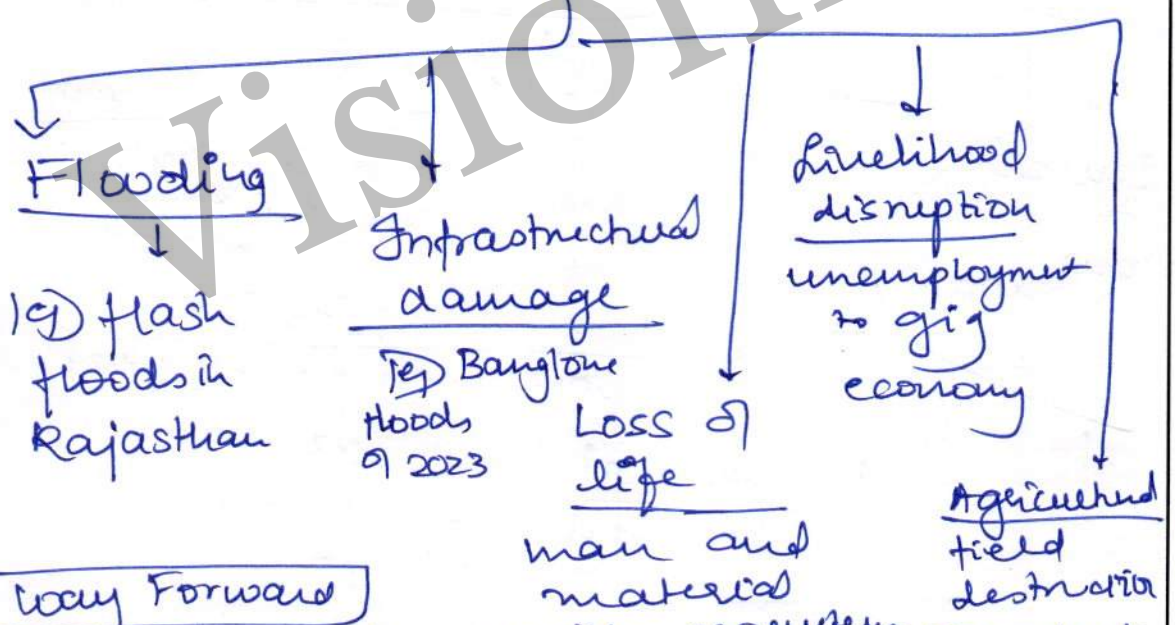 Flooding
eg) flash
floods in
Rajasthan
Infrastructural
damage
eg) Banglore
floods
of 2023
Loss of
life
man and
material
Livelihood
disruption
unemployment
to gig
economy
Agricultural
field
destruction
Way Forward
Vision